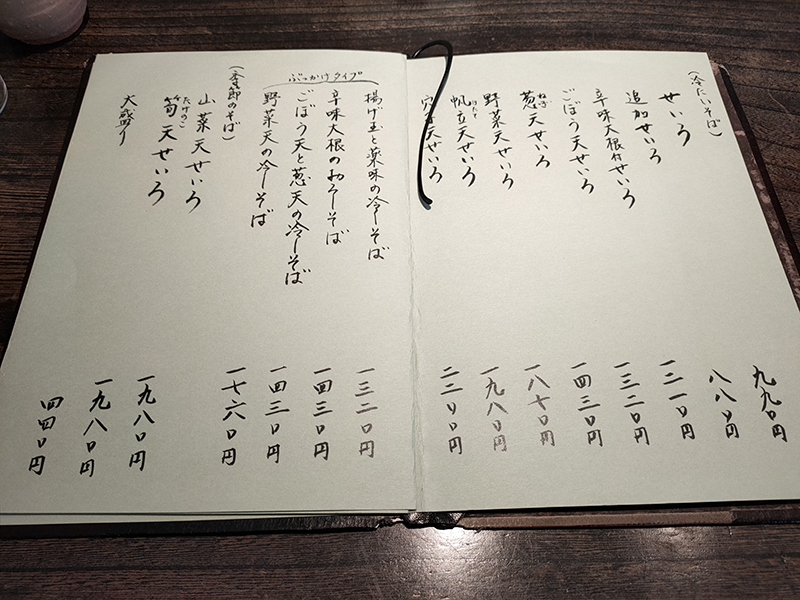 (冷たいそば)
せいろ 九九〇円
追加せいろ 八八〇円
辛味大根付せいろ 一二一〇円
ごぼう天せいろ 一三二〇円
葱天せいろ 一四三〇円
ねぎ
野菜天せいろ 一八七〇円
帆立天せいろ 一九八〇円
ほたて
天せいろ 二二〇〇円
ぶっかけタイプ
揚げ玉と薬味の冷しそば 一三二〇円
辛味大根のおろしそば 一四三〇円
ごぼう天と葱天の冷しそば 一四三〇円
野菜天の冷しそば 一七六〇円
(季節のそば)
山菜天せいろ 一九八〇円
筍天せいろ 一九八〇円
たけのこ
大盛り 四四〇円